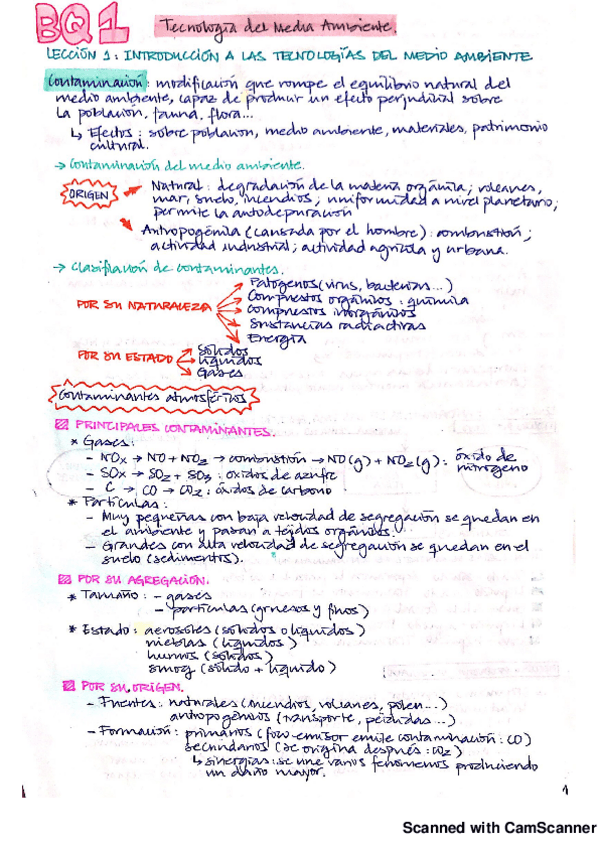 BQ1 Tecnología del Medio Ambiente.
LECCIÓN 1: INTRODUCCIÓN A LAS TECNOLOGÍAS DEL MEDIO AMBIENTE
Contaminación: modificación que rompe el equilibrio natural del
medio ambiente, capaz de producir un efecto perjudicial sobre
la población, fauna, flora...
↳ Efectos: sobre población, medio ambiente, materiales, patrimonio
cultural.
→ Contaminación del medio ambiente.
ORIGEN
Natural: degradación de la materia orgánica; volcanes,
mar, suelo, incendios; uniformidad a nivel planetario;
permite la autodepuración
Antropogénica (causada por el hombre): combustión;
actividad industrial; actividad agrícola y urbana.
→ Clasificación de contaminantes.
POR SU NATURALEZA
Patógenos (virus, bacterias...)
Compuestos orgánicos: química
Compuestos inorgánicos
Sustancias radiactivas
Energía
POR SU ESTADO
Sólidos
Líquidos
Gases
Contaminantes atmosféricos
PRINCIPALES CONTAMINANTES.
* Gases:
- NOx → NO + NO2 → combustión → NO(g) + NO2(g): óxido de
nitrógeno
- SOx → SO2 + SO3: óxidos de azufre
- C → CO → CO2: óxidos de carbono
* Partículas:
- Muy pequeñas con baja velocidad de segregación se quedan en
el ambiente y pasan a tejidos orgánicos.
- Grandes con alta velocidad de segregación se quedan en el
suelo (sedimentos).
POR SU AGREGACIÓN.
* Tamaño: - gases
- partículas (gruesos y finos)
* Estado: aerosoles (sólidos o líquidos)
nieblas (líquidos)
humos (sólidos)
smog (sólido + líquido)
POR SU ORIGEN.
- Fuentes: naturales (incendios, volcanes, polen...)
antropogénicos (transporte, pérdidas...)
- Formación: primarios (foco emisor emite contaminación: CO)
secundarios (se origina después: CO2)
↳ sinergias: se une varios fenómenos produciendo
un daño mayor.
1
Scanned with CamScanner